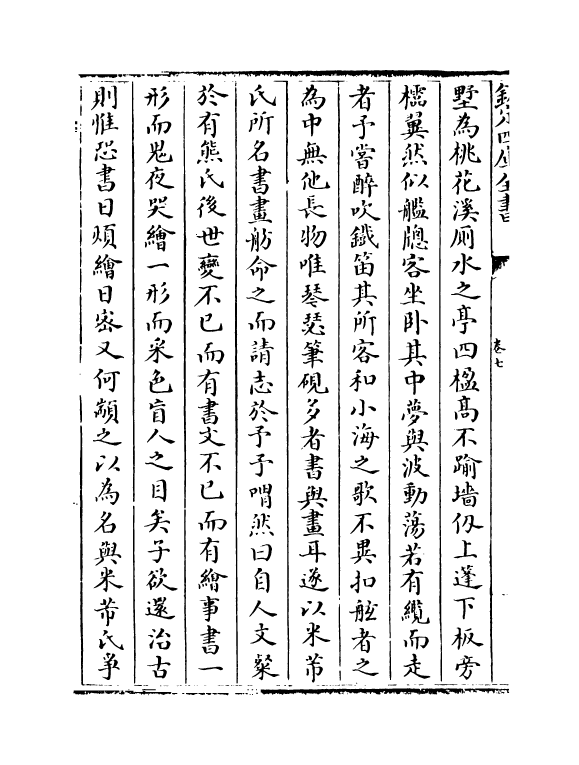 欽定四庫全書
卷七
墅為桃花溪厠水之亭四楹髙不踰墻仭上蓬下板旁
櫺翼然似艦牕客坐卧其中夢與波動蕩若有纜而走
者予嘗醉吹鐡笛其所客和小海之歌不異扣舷者之
為中無他長物唯琴瑟筆硯多者書與畫耳遂以米芾
氏所名書畫舫命之而請志於予予喟然曰自人文粲
於有熊氏後世變不已而有書文不已而有繪事書一
形而鬼夜哭繪一形而米色盲人之目矣子欲還治古
則惟恐書日煩繪日宻又何顓之以為名與米芾氏爭